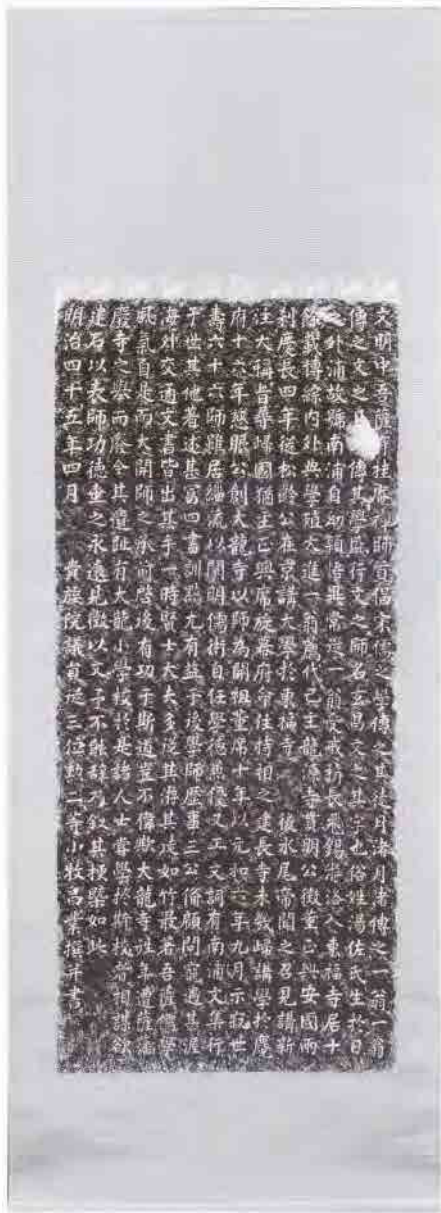 文明中吾薩有桂庵禪師首倡宋儒之學傳之其徒月渚月渚傳之一翁一翁
傳之文之 傳其學盛行文之師名玄昌文之其字也俗姓湯佐氏生於日
外浦故號南浦自幼穎悟異常從一翁受戒 長飛錫 洛入東福寺居十
餘載博綜內外典學殖大進一翁 代己主龍源寺貫明公徵董正興安國兩
刹慶長四年從松齡公在京講大學於東福寺 後水尾帝聞之召見講新
注大稱旨尋歸國猶主正興 旋幕府命住持相之建長寺未幾歸講學於麑
府十六年慈眼公創大龍寺以師為開祖董席十年以元和六年九月示寂世
壽六十六師雖居緇流以開明儒術自任學德兼優又工文詞有南浦文集行
乎世其他著述甚富四書訓點尤有益于後學師歷事三公備顧問寵遇甚渥
海外交通文書皆出其手一時賢士大夫多從其游其 如竹最著吾薩儒學
興 自是而大開師之承前啓後有功于斯道豈不偉歟大龍寺 年遭薩藩
廢寺之擧而廢今其遺趾有大龍小學校於是諸人士嘗學於斯校者相謀欲
建石以表師功德垂之永遠見徵以文予不能辭乃敘其梗槩如此
明治四十五年四月 貴族院議員從三位勳二等小牧昌業撰并書